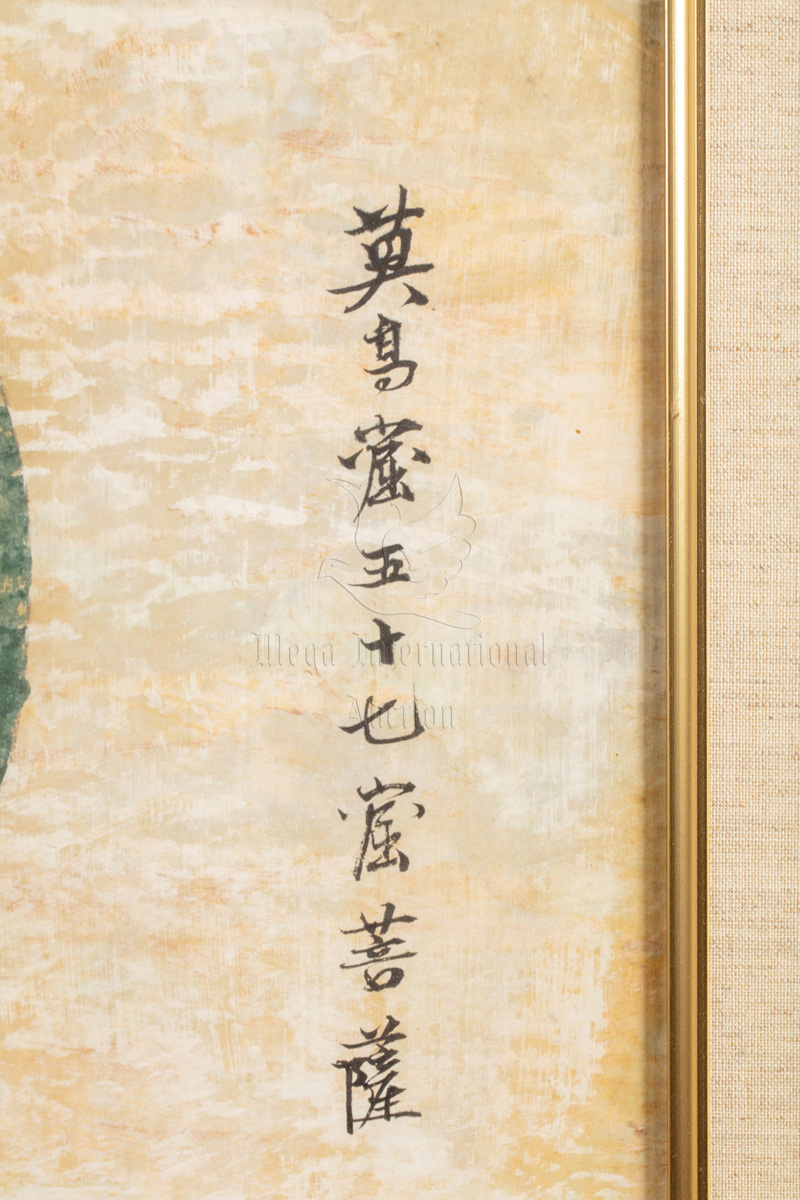 莫高窟五十七窟菩薩
Mega International
Auction